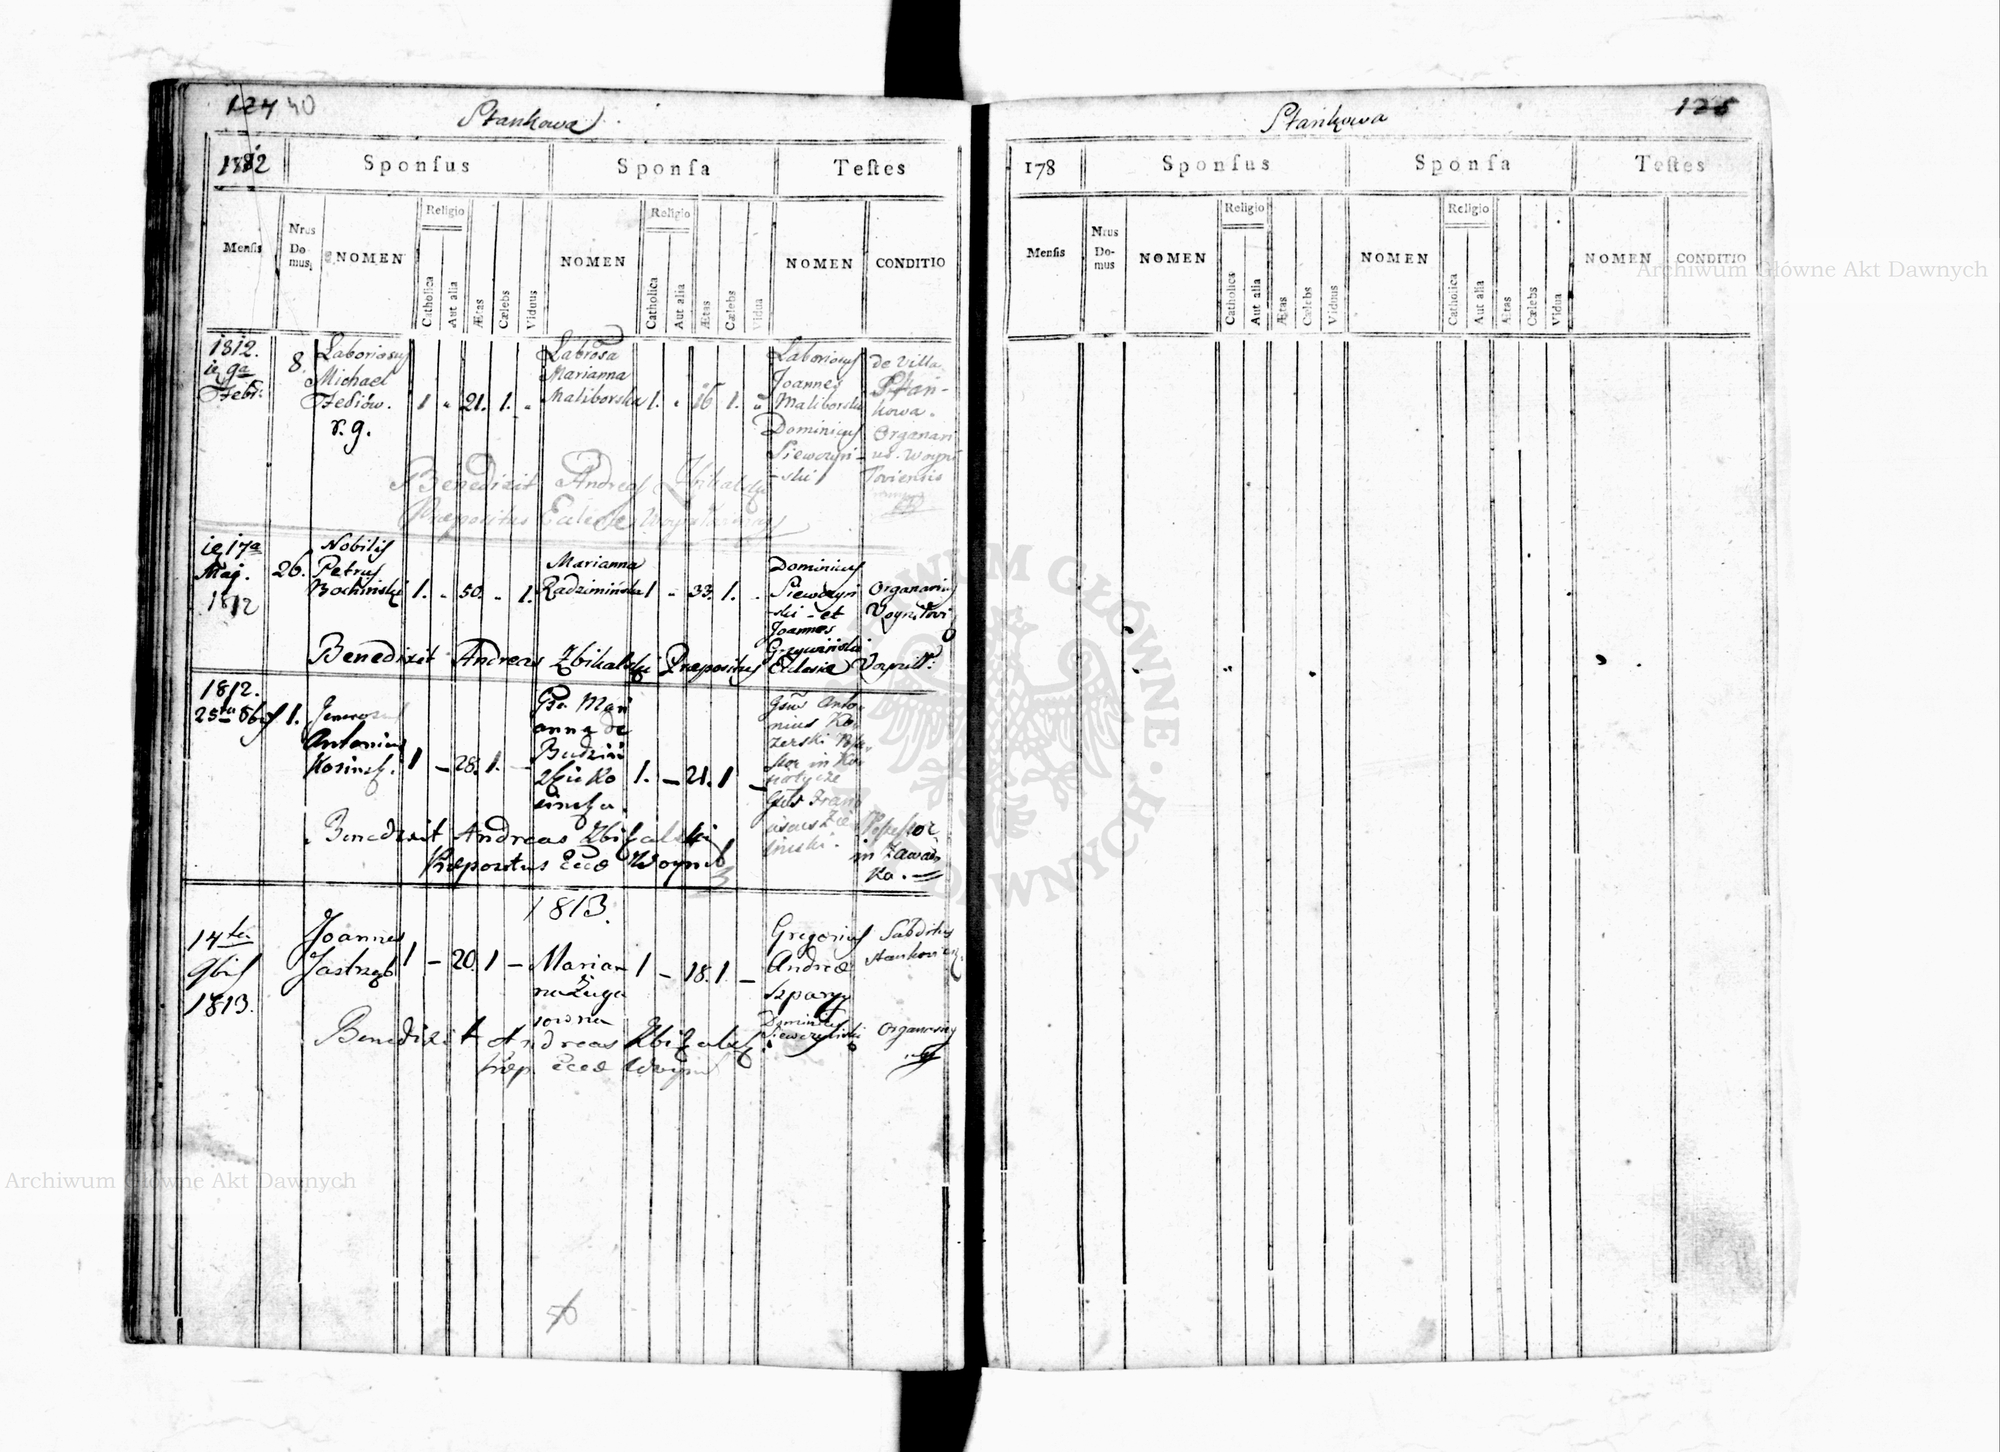 124 40
Stankowa
1812 Sponſus Sponſa Teſtes
Menſis Nrus Domus NOMEN Religio Catholica Aut alia Ætas Cælebs Viduus NOMEN Religio Catholica Aut alia Ætas Cælebs Vidua NOMEN CONDITIO
1812.
9a
Febr.
8.
Laboriosus
Michael
Fediów.
r. g.
1 " 21. 1. "
Labrosa
Marianna
Maliborska
1. " 16 1. "
Laboriosus
Joannes
Maliborski
Dominicus
Siewczyń-
-ski
de Villa
Stan-
kowa.
Organari
us. Woyni
loviensis
Benedixit Andreas Zbikalski
Præpositus Eccle
17a
Maj.
1812
26.
Nobilis
Petrus
Bochiński
1. " 50. " 1.
Marianna
Radzimińska
1 " 33. 1. "
Dominicus
Siewczyń
-ski - et
Joannes
Organarius
Voynilovi
Benedixit Andreas Zbikalski Præpositus Eclesiæ Voynill:
1812.
25ta 8bris
1.
Antonius
Kosinsk.
1 - 28. 1. -
Mari
anna de
Budzi
Ko
sinska.
1. - 21. 1 -
Anto
nius Ko
zerski
in Ko
Fran
ciscus Zie
linski.
Possessor
in Zawad
ka.
Benedixit Andreas Zbikalski
Præpositus Eccæ Woynil
1813.
14ta
9bris
1813.
Joannes
Jastrząb
1 - 20. 1 -
Marian
na Zuga
sowna
1 - 18. 1 -
Gregorius
Andreæ
Szpary
Dominicus
Siewczyński
Subditus
Stankovien.
Organarius
Benedixit Andreas Zbikalsk.
Præp. Eccæ Woynil
56
125
Stankowa
178 Sponſus Sponſa Teſtes
Menſis Nrus Domus NOMEN Religio Catholica Aut alia Ætas Cælebs Viduus NOMEN Religio Catholica Aut alia Ætas Cælebs Vidua NOMEN CONDITIO
Archiwum Główne Akt Dawnych
ARCHIWUM GŁÓWNE AKT DAWNYCH
Archiwum Główne Akt Dawnych